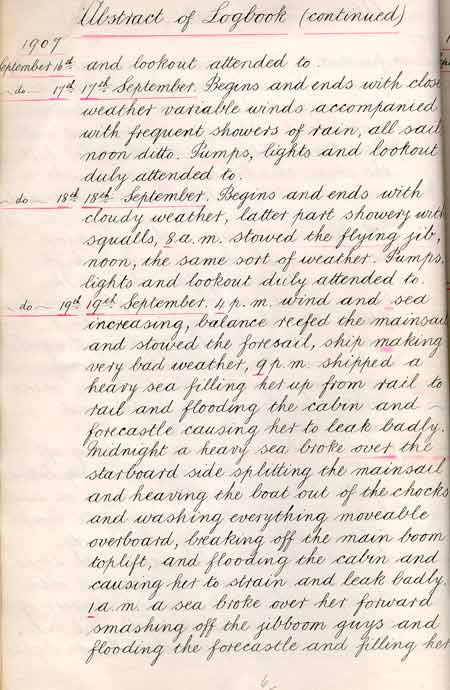 Abstract of Logbook (continued)
1909
September 16th and lookout attended to.
- do - 17th 17th September. Begins and ends with close
weather variable winds accompanied
with frequent showers of rain, all sail
noon ditto. Pumps, lights and lookout
duly attended to.
- do - 18th 18th September. Begins and ends with
cloudy weather, latter part showery with
squalls, 8 a.m. stowed the flying jib,
noon, the same sort of weather. Pumps,
lights and lookout duly attended to.
- do - 19th 19th September. 4 p.m. wind and sea
increasing, balance reefed the mainsail
and stowed the foresail, ship making
very bad weather, 9 p.m. shipped a
heavy sea filling her up from rail to
rail and flooding the cabin and -
forecastle causing her to leak badly.
Midnight a heavy sea broke over the
starboard side splitting the mainsail
and heaving the boat out of the chocks
and washing everything moveable
overboard, breaking off the main boom
toplift, and flooding the cabin and
causing her to strain and leak badly,
1 a.m. a sea broke over her forward
smashing off the jibboom guys and
flooding the forecastle and filling her
6